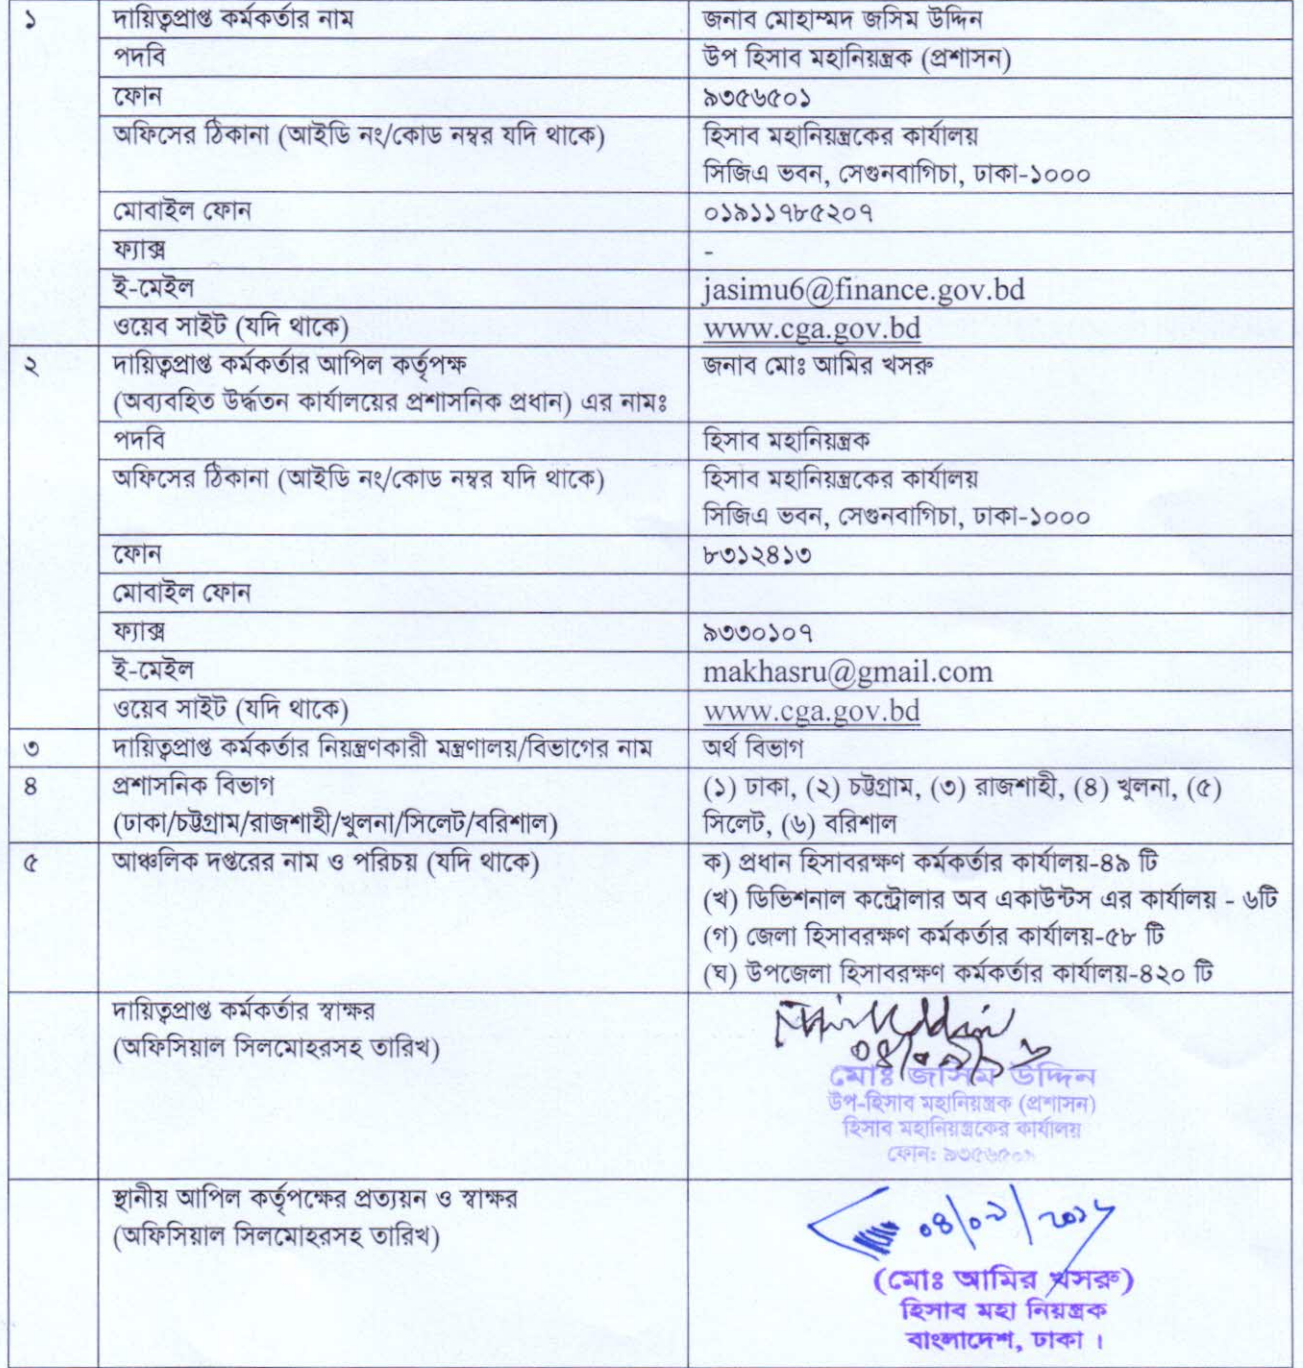 ১ দায়িত্বপ্রাপ্ত কর্মকর্তার নাম জনাব মোহাম্মদ জসিম উদ্দিন
পদবি উপ হিসাব মহানিয়ন্ত্রক (প্রশাসন)
ফোন ৯৩৫৬৫০১
অফিসের ঠিকানা (আইডি নং/কোড নম্বর যদি থাকে) হিসাব মহানিয়ন্ত্রকের কার্যালয়
সিজিএ ভবন, সেগুনবাগিচা, ঢাকা-১০০০
মোবাইল ফোন ০১৯১১৭৮৫২০৭
ফ্যাক্স -
ই-মেইল jasimu6@finance.gov.bd
ওয়েব সাইট (যদি থাকে) www.cga.gov.bd
২ দায়িত্বপ্রাপ্ত কর্মকর্তার আপিল কর্তৃপক্ষ জনাব মোঃ আমির খসরু
(অব্যবহিত উর্দ্ধতন কার্যালয়ের প্রশাসনিক প্রধান) এর নামঃ
পদবি হিসাব মহানিয়ন্ত্রক
অফিসের ঠিকানা (আইডি নং/কোড নম্বর যদি থাকে) হিসাব মহানিয়ন্ত্রকের কার্যালয়
সিজিএ ভবন, সেগুনবাগিচা, ঢাকা-১০০০
ফোন ৮৩১২৪১৩
মোবাইল ফোন
ফ্যাক্স ৯৩৩০১০৭
ই-মেইল makhasru@gmail.com
ওয়েব সাইট (যদি থাকে) www.cga.gov.bd
৩ দায়িত্বপ্রাপ্ত কর্মকর্তার নিয়ন্ত্রণকারী মন্ত্রণালয়/বিভাগের নাম অর্থ বিভাগ
৪ প্রশাসনিক বিভাগ (১) ঢাকা, (২) চট্টগ্রাম, (৩) রাজশাহী, (৪) খুলনা, (৫)
(ঢাকা/চট্টগ্রাম/রাজশাহী/খুলনা/সিলেট/বরিশাল) সিলেট, (৬) বরিশাল
৫ আঞ্চলিক দপ্তরের নাম ও পরিচয় (যদি থাকে) ক) প্রধান হিসাবরক্ষণ কর্মকর্তার কার্যালয়-৪৯ টি
(খ) ডিভিশনাল কন্ট্রোলার অব একাউন্টস এর কার্যালয় - ৬টি
(গ) জেলা হিসাবরক্ষণ কর্মকর্তার কার্যালয়-৫৮ টি
(ঘ) উপজেলা হিসাবরক্ষণ কর্মকর্তার কার্যালয়-৪২০ টি
দায়িত্বপ্রাপ্ত কর্মকর্তার স্বাক্ষর
(অফিসিয়াল সিলমোহরসহ তারিখ)
মোঃ জসিম উদ্দিন
উপ-হিসাব মহানিয়ন্ত্রক (প্রশাসন)
হিসাব মহানিয়ন্ত্রকের কার্যালয়
ফোন: ৯৩৫৬৫০১
স্থানীয় আপিল কর্তৃপক্ষের প্রত্যয়ন ও স্বাক্ষর
(অফিসিয়াল সিলমোহরসহ তারিখ)
(মোঃ আমির খসরু)
হিসাব মহা নিয়ন্ত্রক
বাংলাদেশ, ঢাকা ।